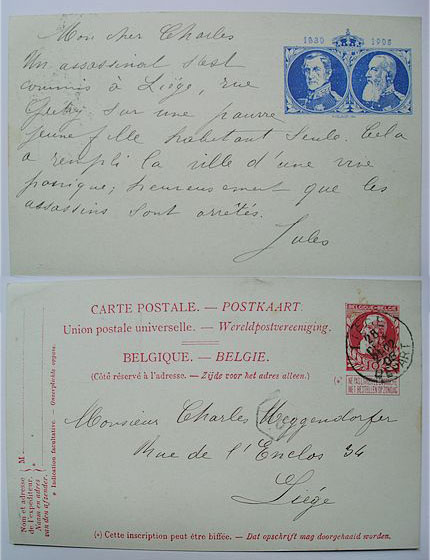 Mon cher Charles
1830 1905
Un assassinat s'est
commis à Liége, rue
Grétry sur une pauvre
jeune fille habitant seule. Cela
a rempli la ville d'une vive
panique; heureusement que les
assassins sont arrêtés.
Jules
CARTE POSTALE. — POSTKAART.
Union postale universelle. — Wereldpostvereeniging.
BELGIQUE. — BELGIE.
(Côté réservé à l'adresse. — Zijde voor het adres alleen.)
(*)
NE PAS LIVRER LE DIMANCHE
NIET BESTELLEN OP ZONDAG
Monsieur Charles Meggendorfer
Rue de l'Enclos 34
Liége
Nom et adresse de l'expéditeur. M
Naam en adres van den afzender.
* Indication facultative. — Onverplichte opgave.
(*) Cette inscription peut être biffée. — Dat opschrift mag doorgehaald worden.